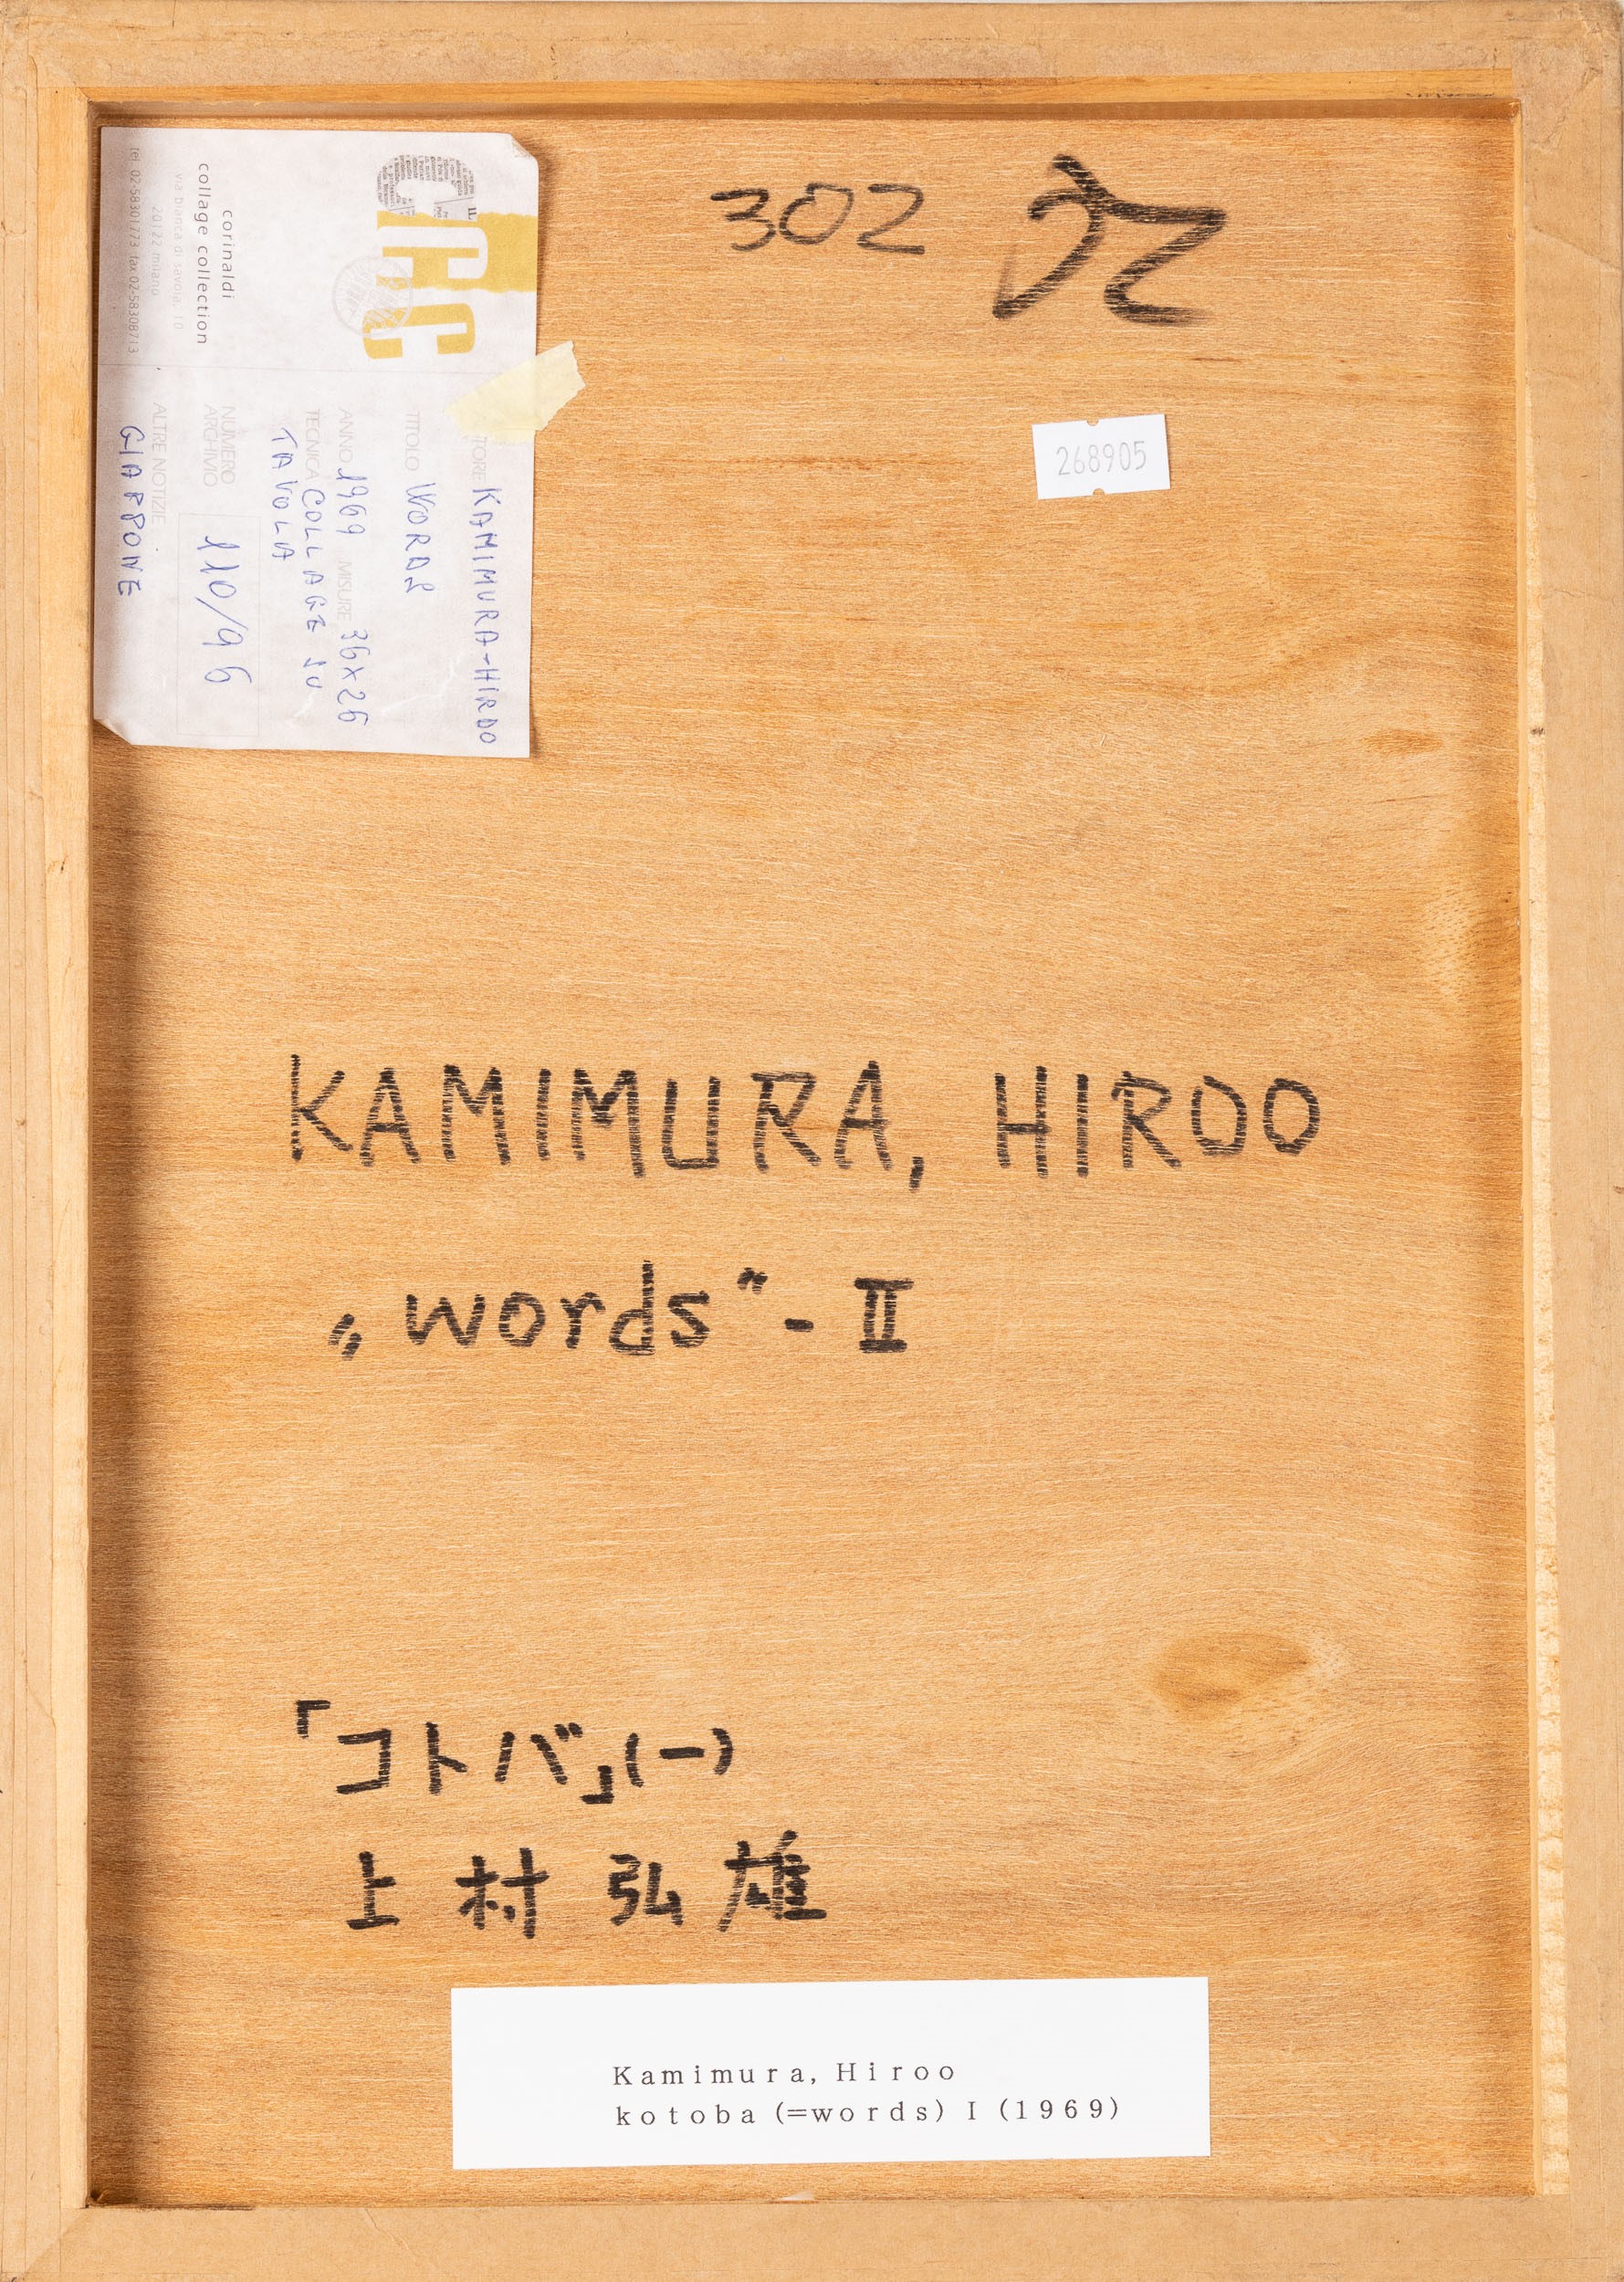 corinaldi
collage collection
via bianca di savoia, 10
20122 milano
tel 02-58301773 fax 02-58308713
CCC
AUTORE KAMIMURA-HIROO
TITOLO WORDS
ANNO 1969 MISURE 36x26
TECNICA COLLAGE SU
TAVOLA
NUMERO
ARCHIVIO 110/96
ALTRE NOTIZIE
GIAPPONE
302
268905
KAMIMURA, HIROO
„words“ - II
「コトバ」(一)
上村弘雄
Kamimura, Hiroo
kotoba (=words) I (1969)